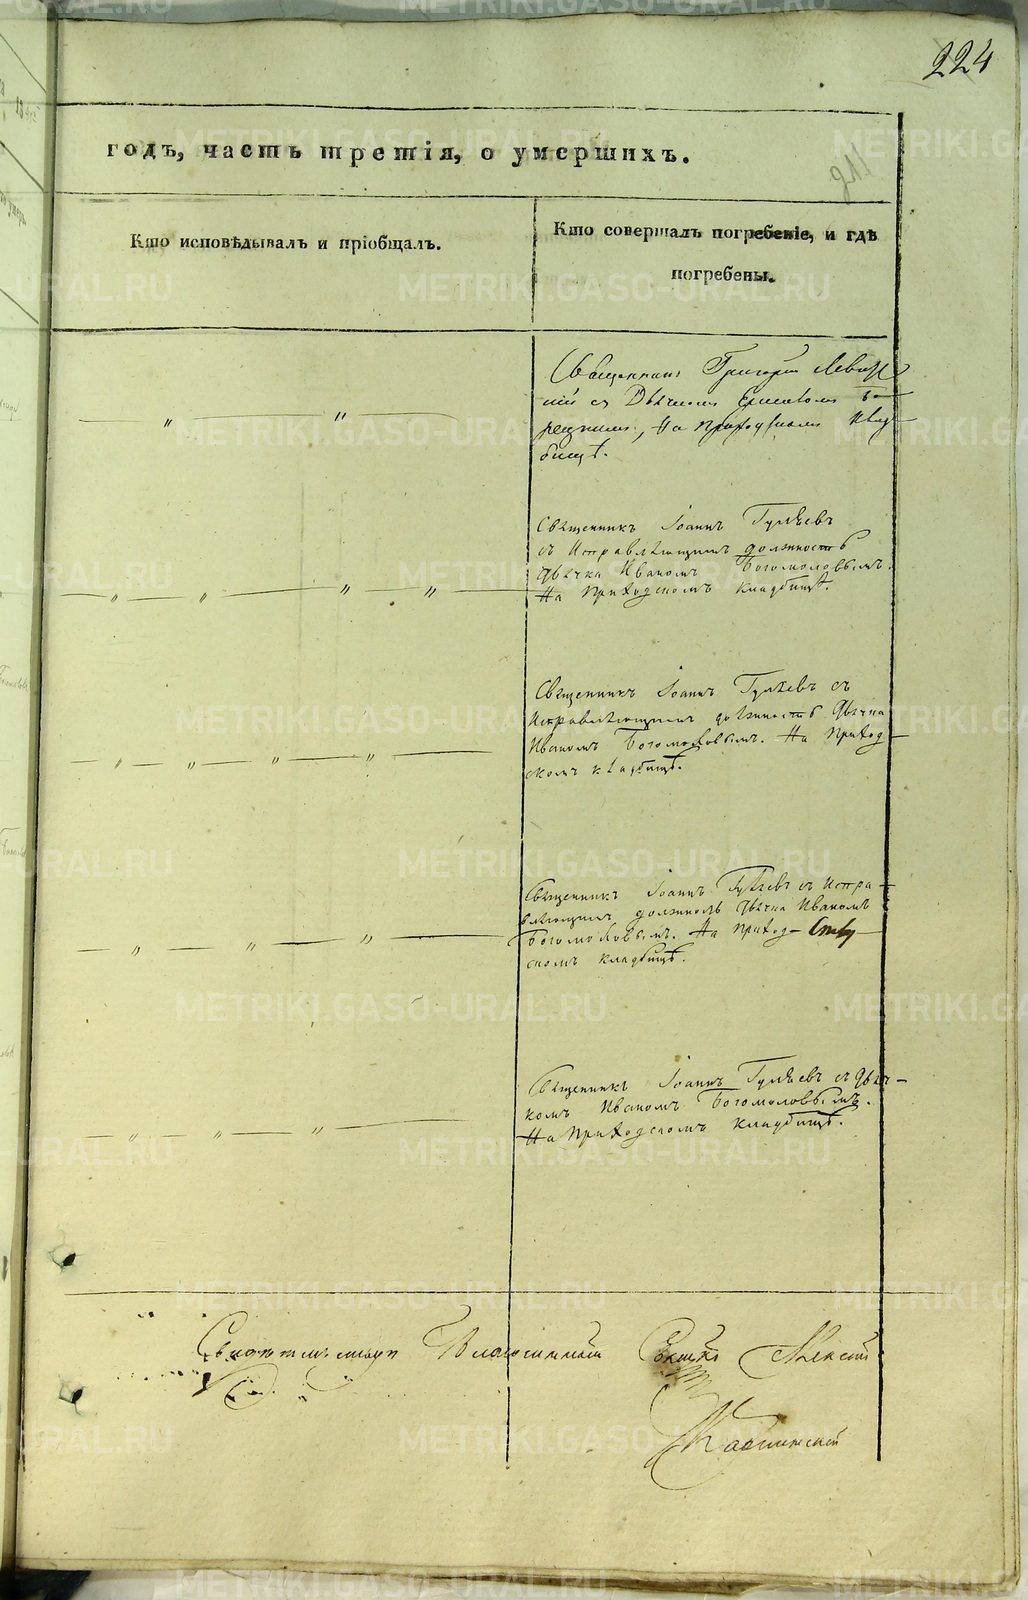 224
годъ, часть третія, о умершихъ.
Кто исповѣдывалъ и пріобщалъ.
Кто совершалъ погребеніе, и гдѣ
погребены.
Священникъ Григорій
на Приходскомъ клад-
бищѣ.
Священникъ Іоаннъ Гуляевъ
съ Исправляющимъ должность
Дьячка Иваномъ Богомоловымъ.
На Приходскомъ кладбищѣ.
Священникъ Іоаннъ Гуляевъ съ
Исправляющимъ должность Дьячка
Иваномъ Богомоловымъ. На Приход-
скомъ кладбищѣ.
Священникъ Іоаннъ Гуляевъ съ Испра-
вляющимъ должность Дьячка Иваномъ
Богомоловымъ. На Приход-
скомъ кладбищѣ.
Священникъ Іоаннъ Гуляевъ съ Дьяч-
комъ Иваномъ Богомоловымъ.
На Приходскомъ кладбищѣ.
Благочинный Алексій
METRIKI.GASO-URAL.RU